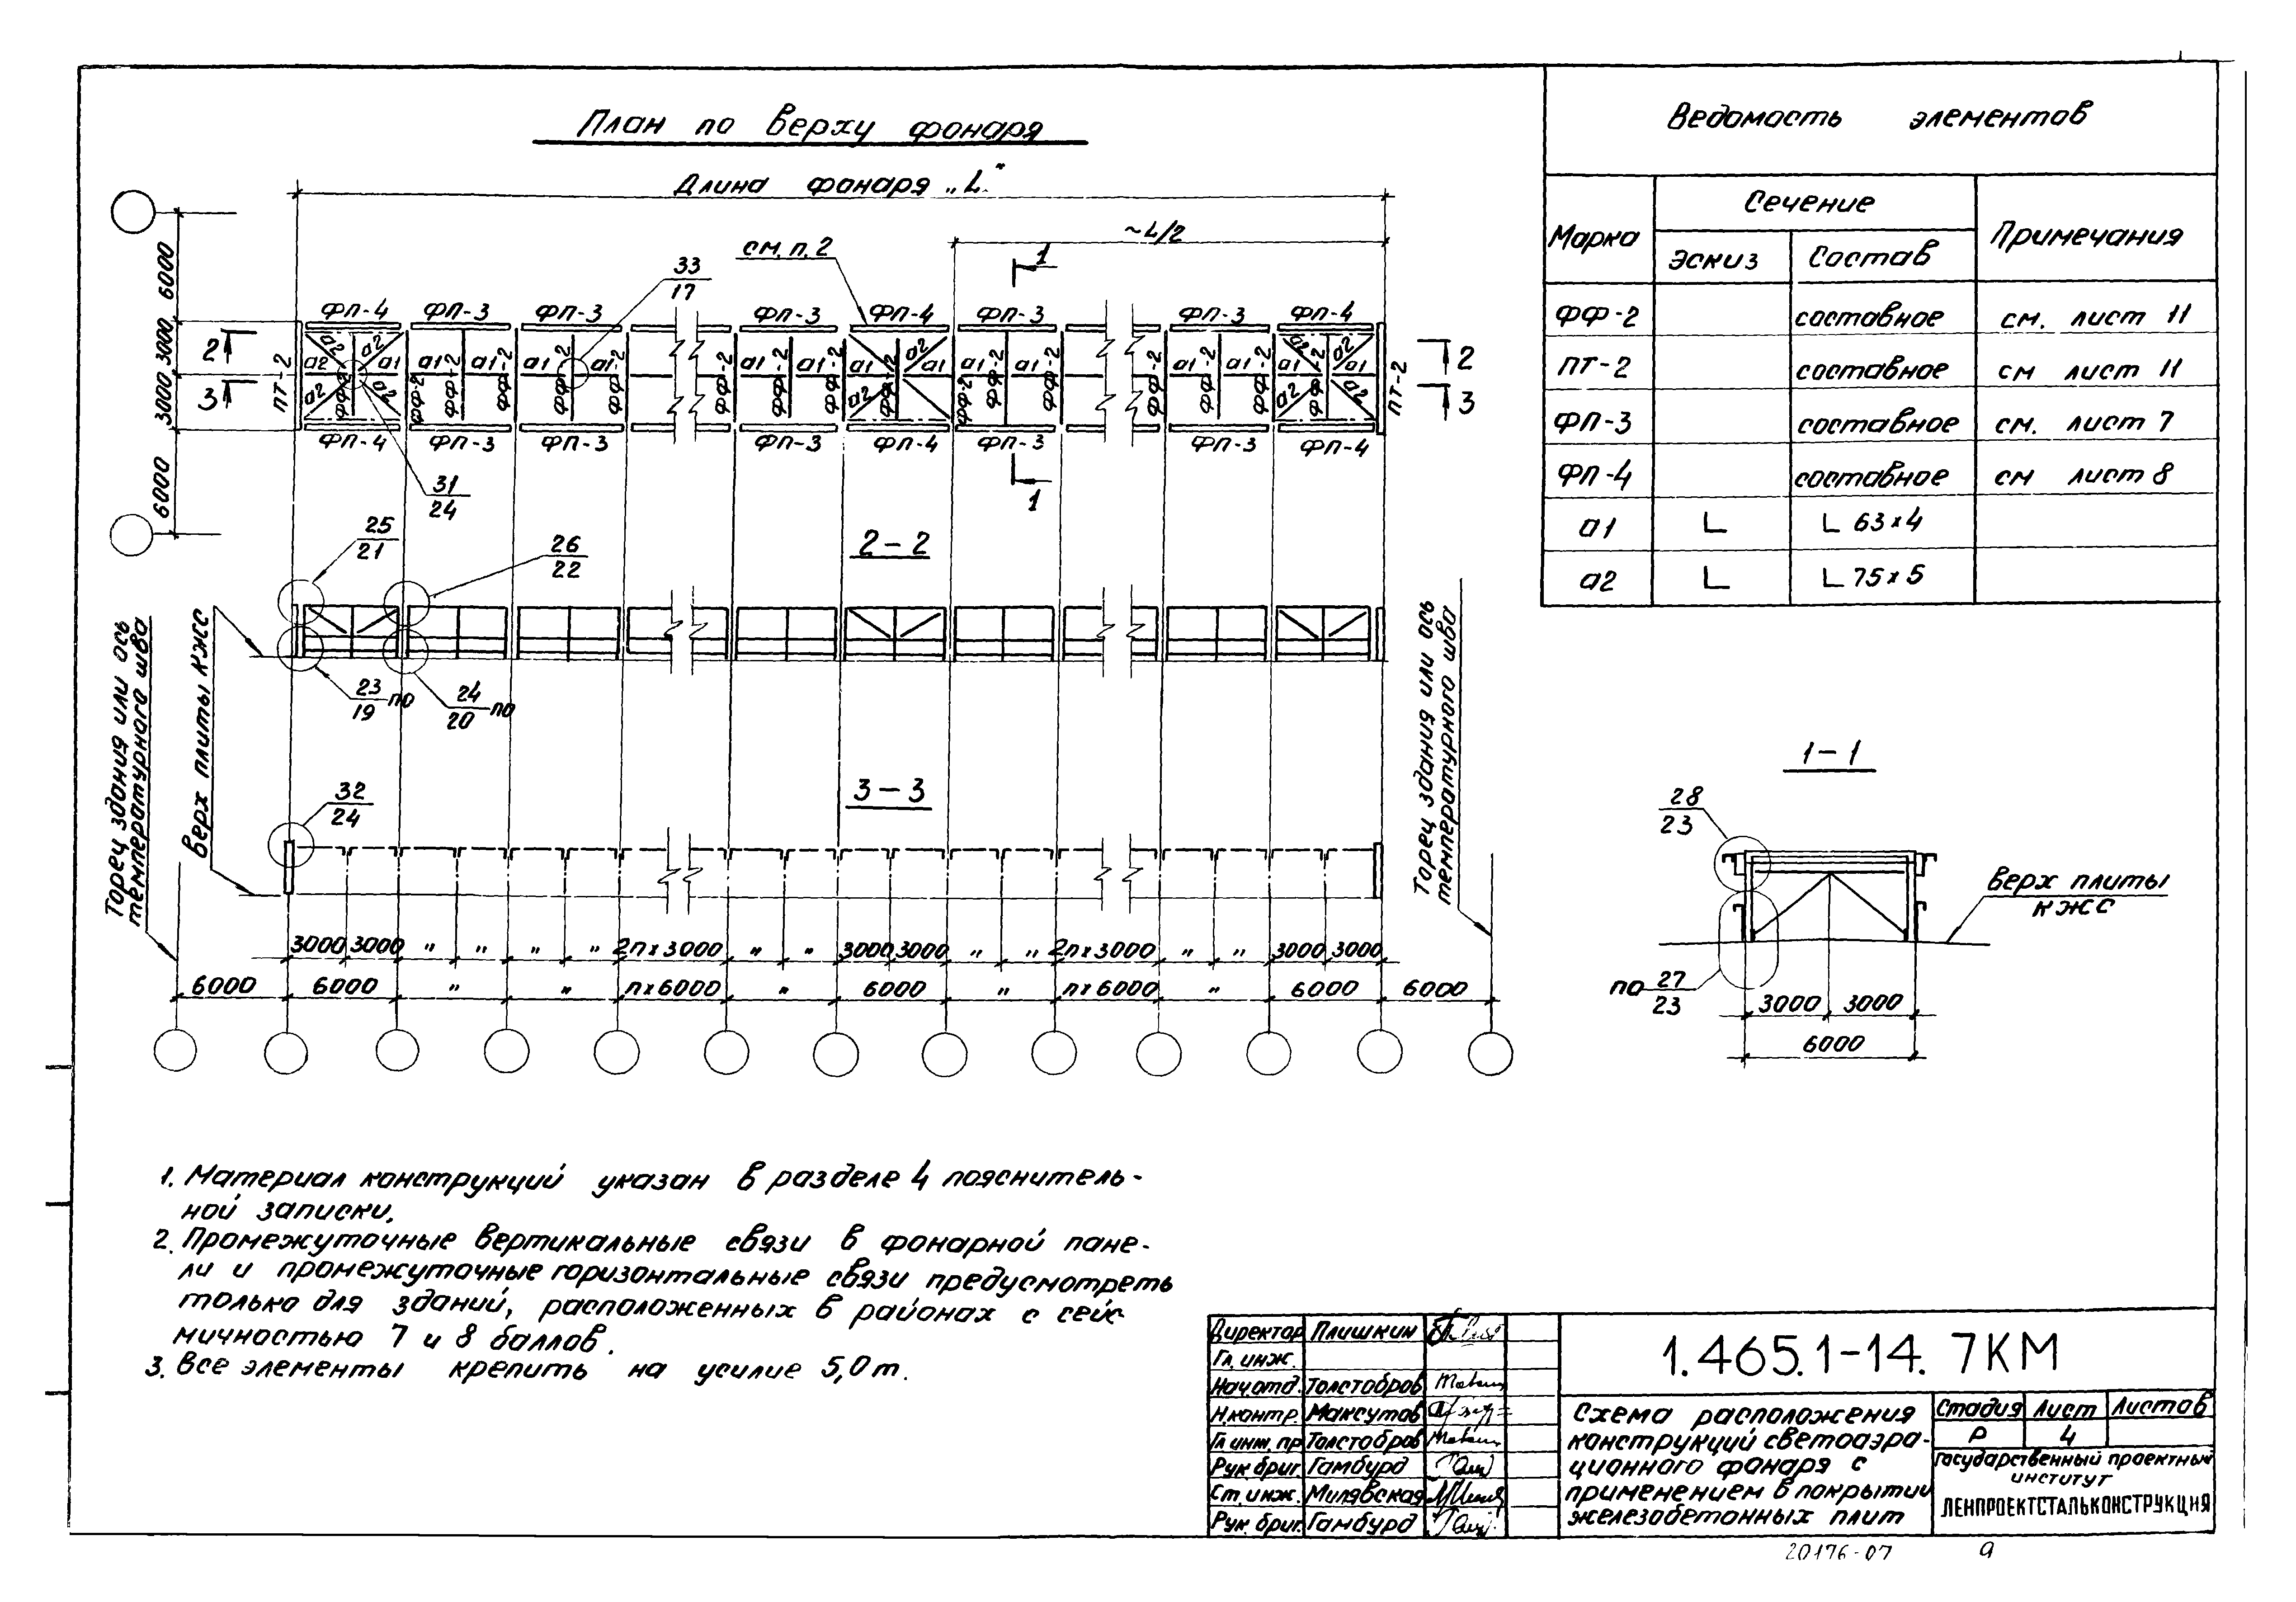 План по верху фонаря
Длина фонаря „L"
~L/2
см. п. 2
33
17
1
6000
3000 3000
6000
ФП-4 ФП-3 ФП-3 ФП-3 ФП-4 ФП-3 ФП-3 ФП-4
2
3
ПТ-2
а2 а2
а2 а1 а1 а1 а1 а1 а1 а1 а1 а2 а1 а1 а1 а1 а1 а1 а2 а2 а1
а2 а2 а2 а2 а2
ФФ-2 ФФ-2 ФФ-2 ФФ-2 ФФ-2 ФФ-2 ФФ-2 ФФ-2 ФФ-2 ФФ-2 ФФ-2 ФФ-2 ФФ-2 ФФ-2 ФФ-2 ФФ-2
ПТ-2
2
3
ФП-4 ФП-3 ФП-3 ФП-3 ФП-4 ФП-3 ФП-3 ФП-4
1
31
24
25
21
26
22
2-2
23
19 по
24
20 по
Торец здания или ось
температурного шва
Верх плиты КЖС
Торец здания или ось
температурного шва
32
24
3-3
3000 3000 " " " " 2п х 3000 " " 3000 3000 " " 2п х 3000 " " 3000 3000
6000 6000 " " п х 6000 " 6000 " п х 6000 " 6000 6000
Ведомость элементов
Марка Сечение Примечания
Эскиз Состав
ФФ-2 составное см. лист 11
ПТ-2 составное см лист 11
ФП-3 составное см. лист 7
ФП-4 составное см лист 8
а1 L L 63 х 4
а2 L L 75 х 5
1-1
28
23
Верх плиты
КЖС
по 27
23
3000 3000
6000
1. Материал конструкций указан в разделе 4 пояснитель-
ной записки.
2. Промежуточные вертикальные связи в фонарной пане-
ли и промежуточные горизонтальные связи предусмотреть
только для зданий, расположенных в районах с сейс
мичностью 7 и 8 баллов.
3. Все элементы крепить на усилие 5,0 т.
Директор Плишкин
Гл. инж.
Нач. отд. Толстобров
Н. контр. Максутов
Гл. инж. пр Толстобров
Рук. бриг. Гамбурд
Ст. инж. Милявская
Рук. бриг. Гамбурд
1.465.1-14. 7КМ
Схема расположения
конструкций светоаэра-
ционного фонаря с
применением в покрытии
железобетонных плит
Стадия Лист Листов
Р 4
Государственный проектный
институт
ЛЕНПРОЕКТСТАЛЬКОНСТРУКЦИЯ
20176-07 9